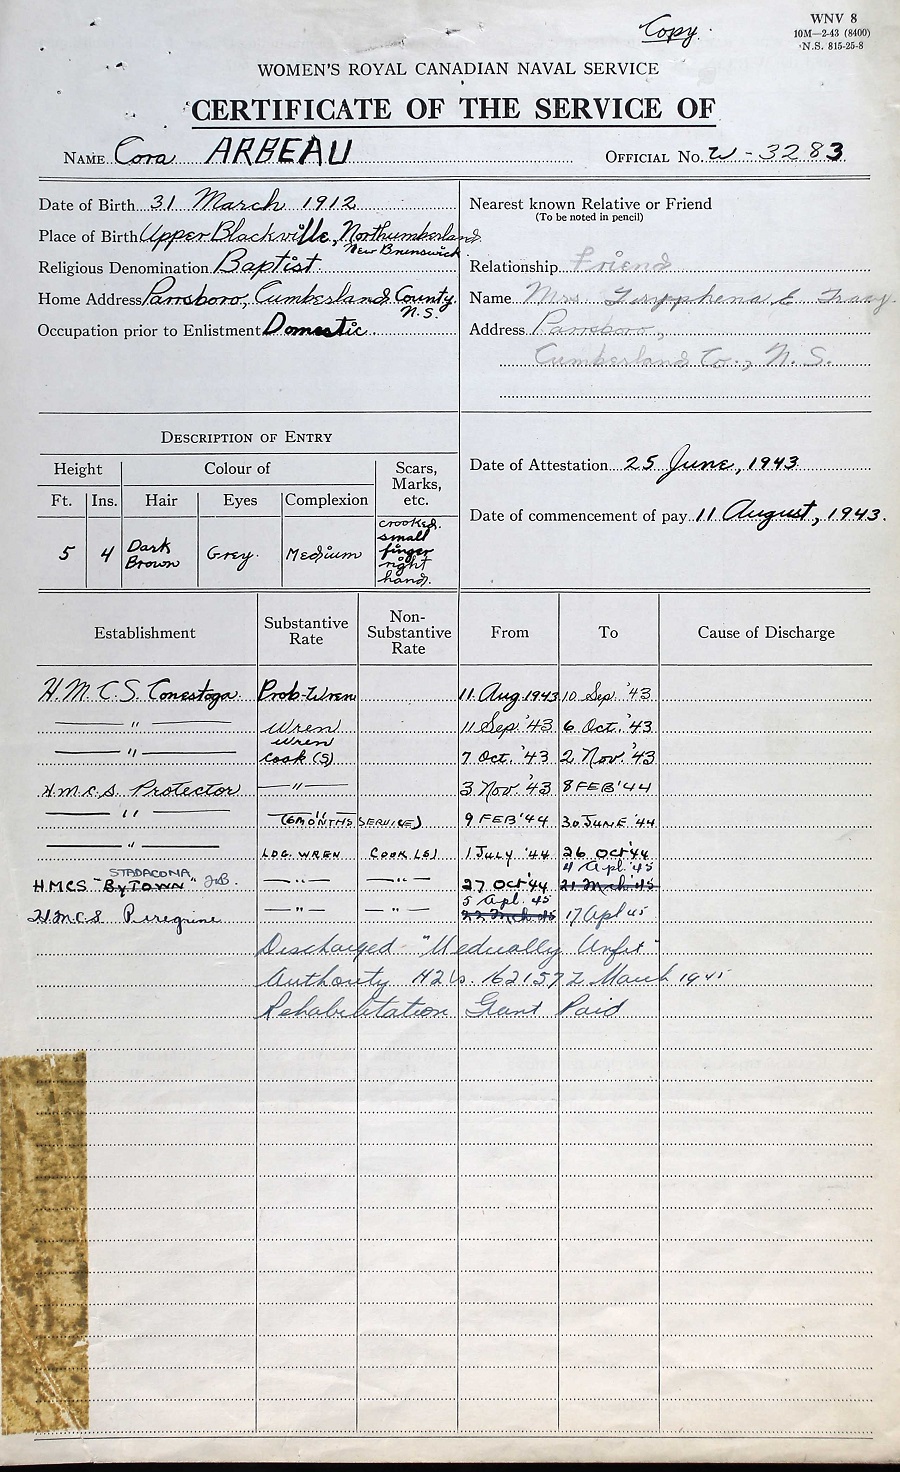 Copy.
WNV 8
10M—2-43 (8400)
N.S. 815-25-8
WOMEN'S ROYAL CANADIAN NAVAL SERVICE
CERTIFICATE OF THE SERVICE OF
NAME Cora ARBEAU OFFICIAL NO. W-3283
Date of Birth 31 March 1912
Place of Birth Upper Blackville, Northumberland
New Brunswick
Religious Denomination Baptist
Home Address Parrsboro, Cumberland County
N.S.
Occupation prior to Enlistment Domestic
Nearest known Relative or Friend
(To be noted in pencil)
Relationship Friend
Name Mrs. E
Address Parrsboro,
Cumberland Co., N.S.
DESCRIPTION OF ENTRY
Height Colour of Scars, Marks, etc.
Ft. Ins. Hair Eyes Complexion
5 4 Dark Brown Grey. Medium crooked small finger right hand.
Date of Attestation 25 June, 1943
Date of commencement of pay 11 August, 1943.
Establishment Substantive Rate Non-Substantive Rate From To Cause of Discharge
H.M.C.S. Conestoga Prob-Wren 11 Aug 1943 10 Sep. '43
— " — Wren 11 Sep. '43 6 Oct. '43
— " — Wren Cook (S) 7 Oct. '43 2 Nov. '43
H.M.C.S. Protector — " — 3 Nov. '43 8 FEB '44
— " — — " — (6 MONTHS SERVICE) 9 FEB '44 30 JUNE '44
— " — LDG. WREN COOK (S) 1 July '44 26 Oct '44
STADACONA 4 Apl. '45
H.M.C.S "BYTOWN" — " — — " — 27 Oct '44 21 Mch '45
5 Apl. 45
H.M.C.S Peregrine — " — — " — 22 Mch 45 17 Apl 45
Discharged "Medically Unfit"
Authority 2 March 1945
Rehabilitation Grant Paid